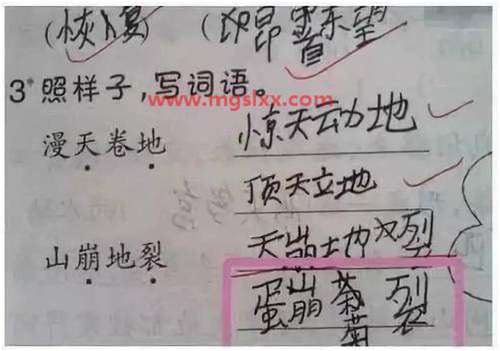 (恢复) (昂首东望)
3*照样子，写词语。
www.mgslxx.com
漫天卷地 惊天动地
顶天立地
山崩地裂 天崩地裂
蛋崩菊裂
菊